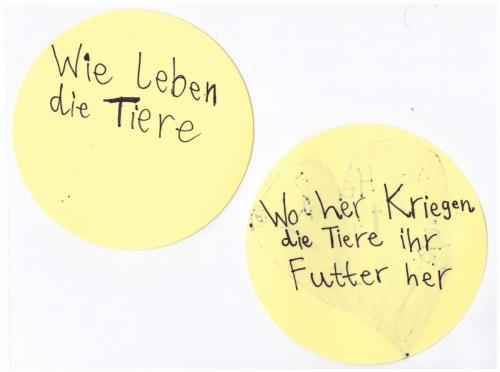 Wie leben
die Tiere
Wo her Kriegen
die Tiere ihr
Futter her